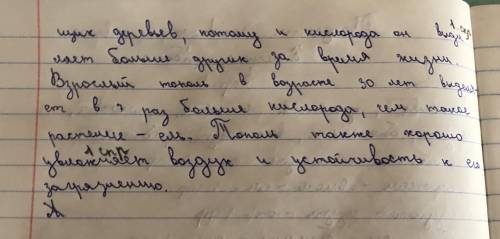 щих деревьев, потому и кислорода он выде
1 спр
ляет больше других за время жизни.
Взрослый тополь в возрасте 30 лет выделя-
ет в 7 раз больше кислорода, чем такое
растение - ель. Тополь также хорошо
1 спр
увлажняет воздух и устойчивость к его
загрязнению.